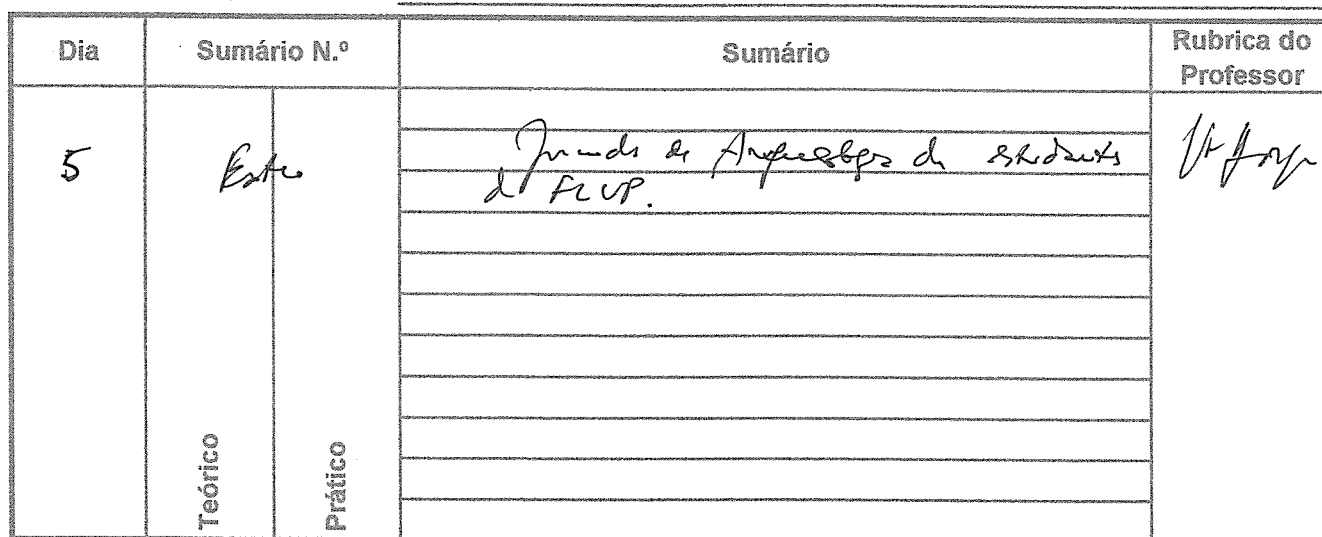 Dia
Sumário N.º
Sumário
Rubrica do
Professor
5
Extra
Jornadas de Arqueologia de estudantes
da FLUP.
Teórico
Prático